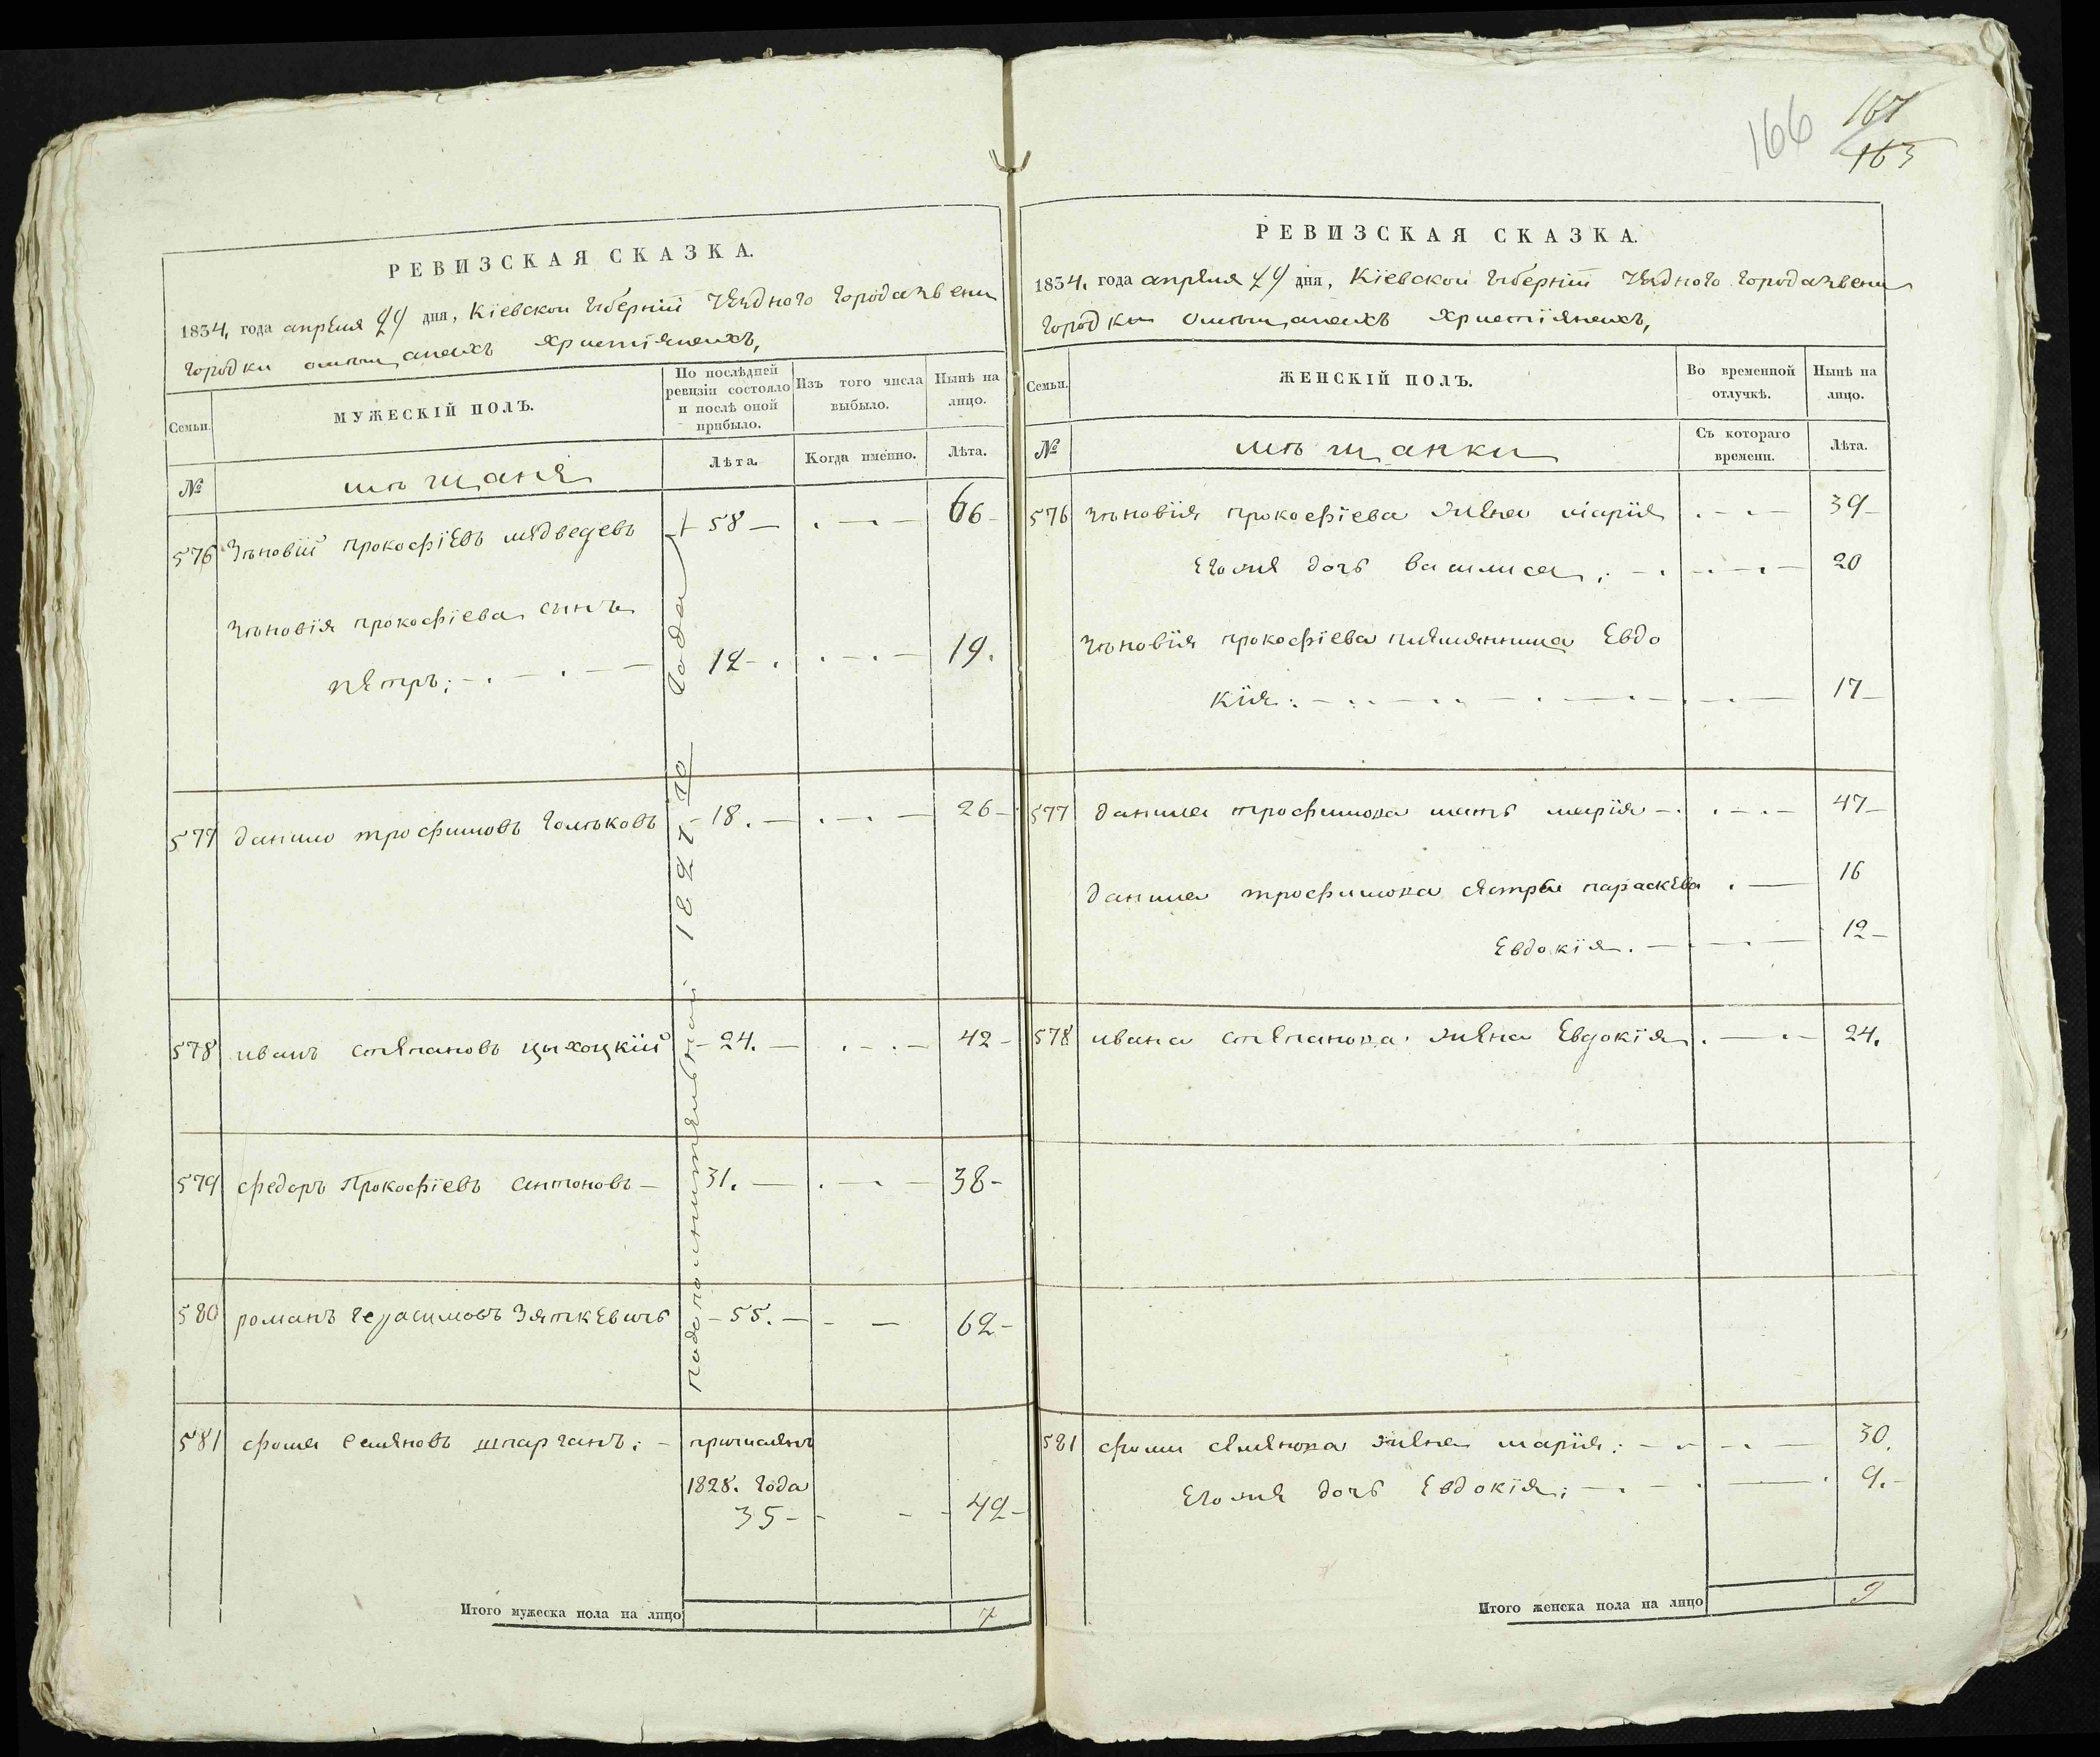 166
167
165
РЕВИЗСКАЯ СКАЗКА.
1834, года апреля 24 дня, Кіевской губерніи уездного города звени
городки омѣщанехъ христіянехъ,
Семьи.
МУЖЕСКІЙ ПОЛЪ.
По послѣдней ревизіи состояло и послѣ оной прибыло.
Изъ того числа выбыло.
Нынѣ на лицо.
№
мѣщане
Лѣта.
Когда именно.
Лѣта.
576 Зѣновій прокофіевъ медведевъ 58 66
Зѣновія прокофіева сынъ
петръ; 12 19.
577 данило трофимовъ 18. 26
578 иванъ степановъ цыхоцкій 24. 42
579 федоръ Прокофіевъ антоновъ 31. 38
580 романъ герасимовъ Зяткевичъ 55. 62
581 фома семеновъ шпарганъ; причисленъ
1828. года
35 42
подополнительной 1827 го года
Итого мужеска пола на лицо 7
РЕВИЗСКАЯ СКАЗКА.
1834, года апреля 24 дня, Кіевской губерніи уездного города звени
городки омѣщанехъ христіянехъ,
Семьи.
ЖЕНСКІЙ ПОЛЪ.
Во временной отлучкѣ.
Нынѣ на лицо.
№
мѣщанки
Съ котораго времени.
Лѣта.
576 Зѣновія прокофіева жена марія 39
Егоже дочь василиса; 20
Зѣновія прокофіева племянница Евдо
кія: 17
577 данила трофимова мать марія 47
данила трофимова сестры параскева 16
Евдокія. 12
578 ивана степанова жена Евдокія 24.
581 фомы семенова жена марія: 30.
Егоже дочь Евдокія; 9.
Итого женска пола на лицо 9